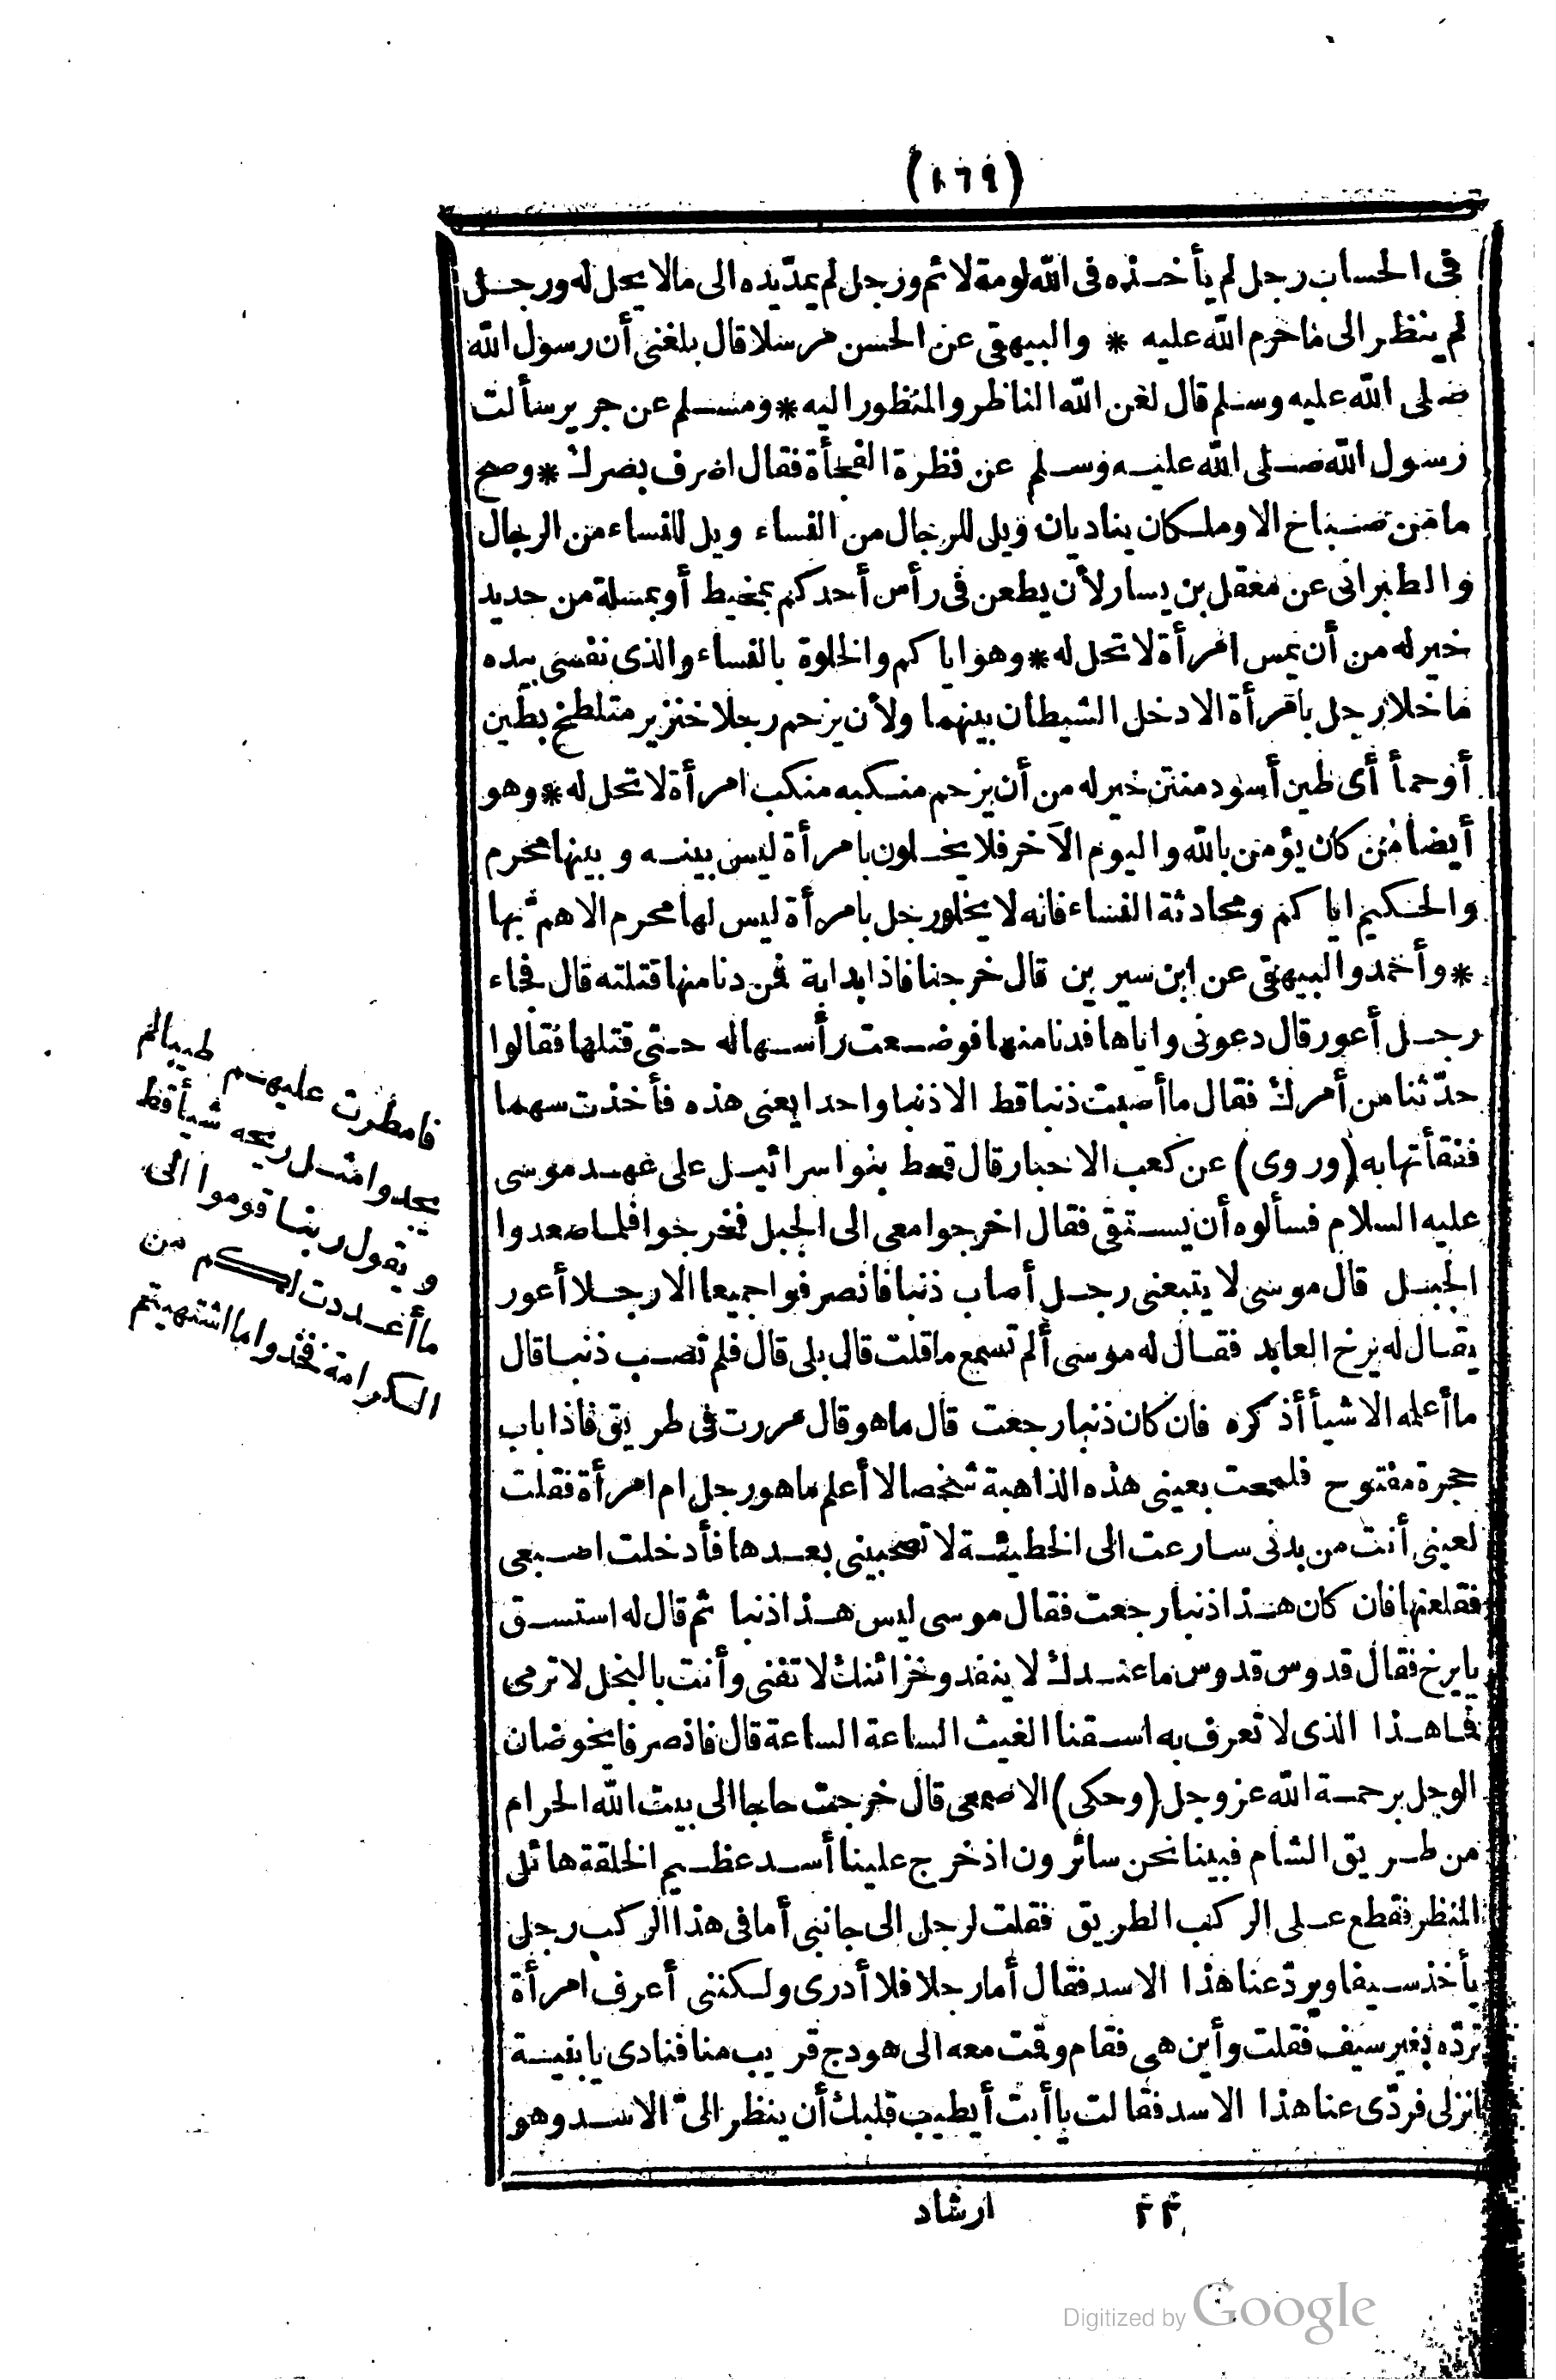 (١٦٩)
فى الحساب رجل لم يأخذه فى الله لومة لائم ورجل لم يمدّيده الى مالا يحل له ورجل
لم ينظر الى ماحرم الله عليه * والبيهقى عن الحسن مرسلا قال بلغنى أن رسول الله
صلى الله عليه وسلم قال لعن الله الناظر والمنظور اليه * ومسلم عن جرير سألت
رسول الله صلى الله عليه وسلم عن نظرة الفجأة فقال اصرف بصرك * وصح
مامن صباح الا وملكان يناديان ويل للرجال من النساء ويل للنساء من الرجال
والطبرانى عن معقل بن يسار لأن يطعن فى رأس أحدكم بمخيط أو بمسلة من حديد
خير له من أن يمس امرأة لا تحل له * وهو ايا كم والخلوة بالنساء والذى نفسى بيده
ماخلا رجل بامرأة الا دخل الشيطان بينهما ولأن يزحم رجلا خنزير متلطخ بطين
أوحمأ أى طين أسود منتن خير له من أن يزحم منكبه منكب امرأة لا تحل له * وهو
أيضا من كان يؤمن بالله واليوم الآخر فلا يخلون بامرأة ليس بينه وبينها محرم
والحكيم ايا كم ومحادثة النساء فانه لا يخلو رجل بامرأة ليس لها محرم الا همّ بها
* وأحمد والبيهقى عن ابن سيرين قال خرجنا فاذا بدابة فمن دنا منها قتلته قال فجاء
رجل أعور قال دعونى واياها فدنا منها فوضعت رأسها له حتى قتلها فقالوا
حدّثنا من أمرك فقال ماأصبت ذنبا قط الا ذنبا واحدا يعنى هذه فأخذت سهما
ففقأتها به (وروى) عن كعب الاحبار قال قحط بنوا سرائيل على عهد موسى
عليه السلام فسألوه أن يستسقى فقال اخرجوا معى الى الجبل فخرجوا فلما صعدوا
الجبل قال موسى لا يتبعنى رجل أصاب ذنبا فانصرفوا جميعا الا رجلا أعور
يقال له برخ العابد فقال له موسى ألم تسمع ماقلت قال بلى قال فلم تصب ذنبا قال
ماأعلمه الا شيأ أذكره فان كان ذنبا رجعت قال ماهو قال مررت فى طريق فاذا باب
حجرة مفتوح فلمحت بعينى هذه الذاهبة شخصا لا أعلم ماهو رجل ام امرأة فقلت
لعينى أنت من بدنى سارعت الى الخطيئة لا تصحبينى بعدها فأدخلت اصبعى
فقلعتها فان كان هذا ذنبا رجعت فقال موسى ليس هذا ذنبا ثم قال له استسق
يابرخ فقال قدوس قدوس ماعندك لا ينفد وخزائنك لا تفنى وأنت بالبخل لا ترمى
فما هذا الذى لا تعرف به اسقنا الغيث الساعة الساعة قال فانصرفا يخوضان
الوحل برحمة الله عز وجل (وحكى) الاصمعى قال خرجت حاجا الى بيت الله الحرام
من طريق الشام فبينا نحن سائرون اذخرج علينا أسد عظيم الخلقة هائل
المنظر فقطع على الركب الطريق فقلت لرجل الى جانبى أما فى هذا الركب رجل
يأخذ سيفا ويردّعنا هذا الاسد فقال أما رجلا فلا أدرى ولكننى أعرف امرأة
تردّه بغير سيف فقلت وأين هى فقام وقمت معه الى هودج قريب منا فنادى يابنية
انزلى فردّى عنا هذا الاسد فقالت ياأبت أيطيب قلبك أن ينظر الىّ الاسد وهو
٢٢ ارشاد
فامطرت عليهم طيبا لم
يجدوا مثل ريحه شيأ قط
ويقول ربنا قوموا الى
ماأعددت لكم من
الكرامة فخذوا ما اشتهيتم
Digitized by Google